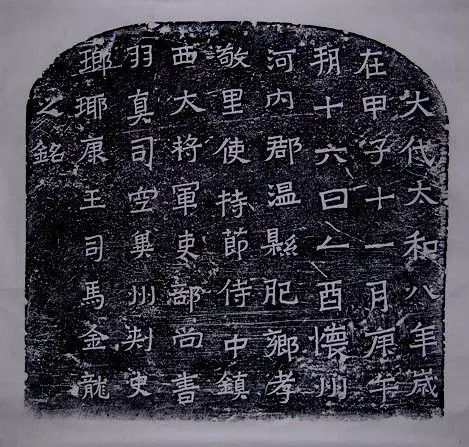 大代太和八年歲
在甲子十一月庚午
朔十六日乙酉懷州
河內郡溫縣肥鄉孝
敬里使持節侍中鎮
西大將軍吏部尚書
羽真司空冀州刺史
瑯琊康王司馬金龍
之銘